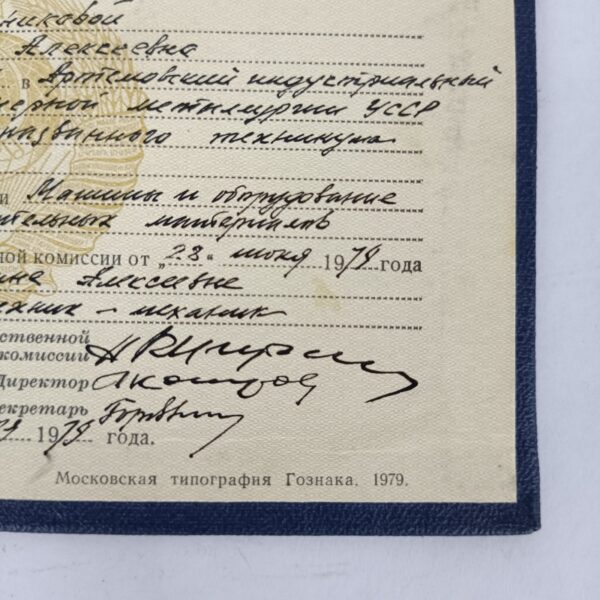 никовой
Алексеевна
в Артемовский индустриальный
черной металлургии УССР
названного техникума
и Машины и оборудование
ительных материалов
ной комиссии от „28“ июня 1979 года
Алексеевне
техник - механик
ственной
комиссии
Директор
секретарь
1979 года.
Московская типография Гознака. 1979.